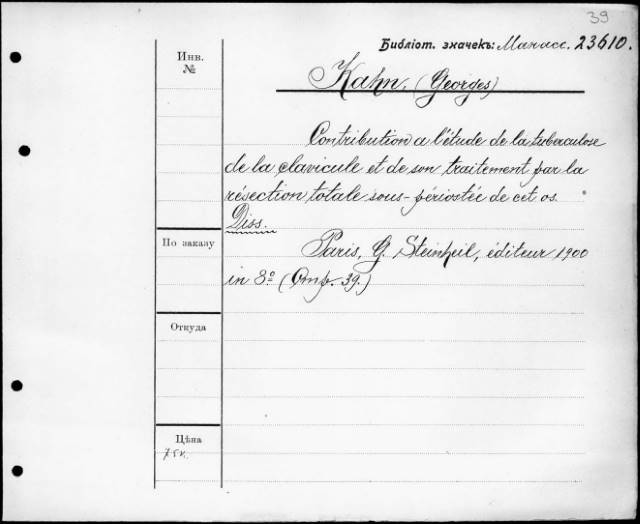 39
Библіот. значекъ: Манасс. 23610.
Инв.
№
Kahn. (Georges)
Contribution a l'étude de la tuberculose
de la clavicule et de son traitement par la
résection totale sous-périostée de cet os.
Diss.
По заказу
Paris, G. Steinheil, éditeur 1900
in 8º (Стр. 39.)
Откуда
Цѣна
75к.